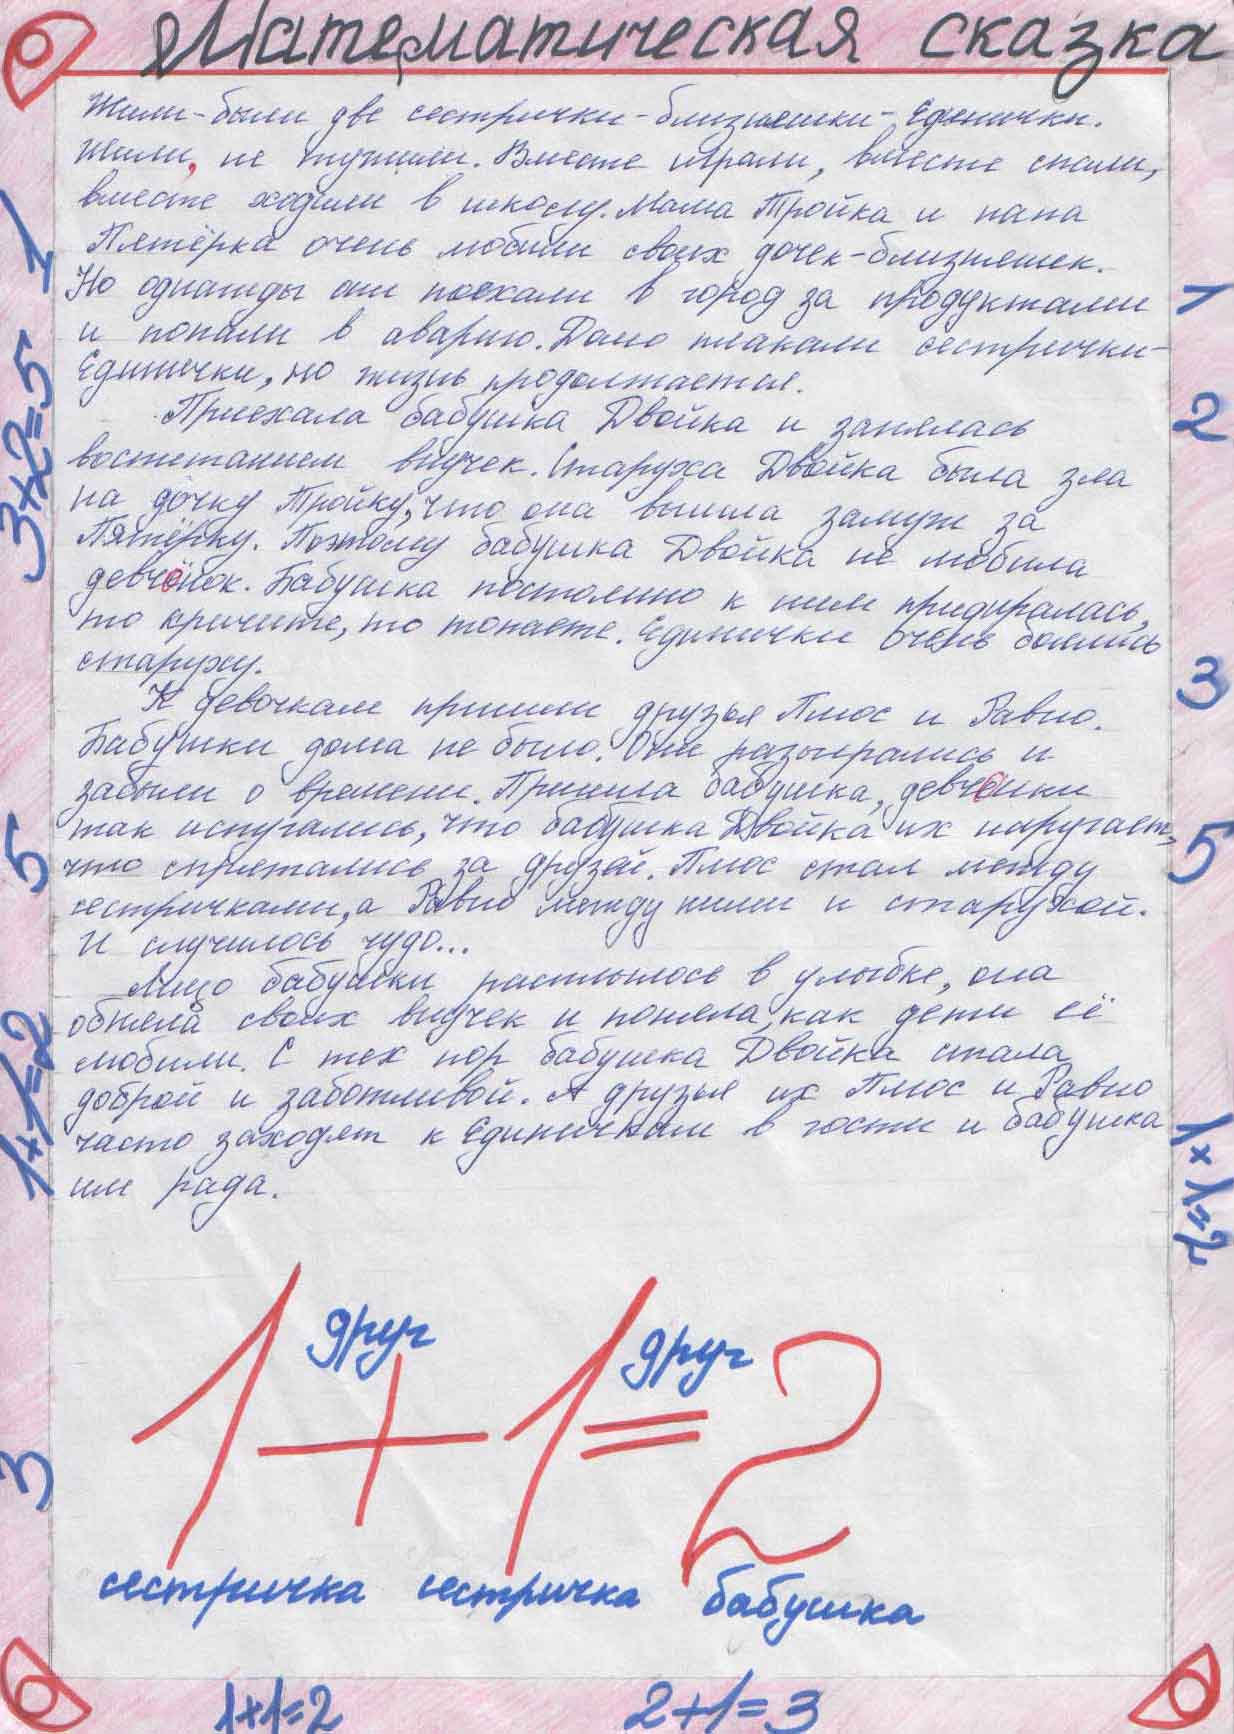 Математическая сказка
Жили-были две сестрички-близняшки-Единички.
Жили, не тужили. Вместе играли, вместе спали,
вместе ходили в школу. Мама Тройка и папа
Пятёрка очень любили своих дочек-близняшек.
Но однажды они поехали в город за продуктами
и попали в аварию. Долго плакали сестрички-
Единички, но жизнь продолжается.
Приехала бабушка Двойка и занялась
воспитанием внучек. Старуха Двойка была зла
на дочку Тройку, что она вышла замуж за
Пятёрку. Поэтому бабушка Двойка не любила
девчонок. Бабушка постоянно к ним придиралась,
то кричит, то топает. Единички очень боялись
старуху.
К девочкам пришли друзья Плюс и Равно.
Бабушки дома не было. Они разыгрались и
забыли о времени. Пришла бабушка, девчонки
так испугались, что бабушка Двойка их наругает,
что спрятались за друзей. Плюс стал между
сестричками, а Равно между ними и старухой.
И случилось чудо...
Лицо бабушки расплылось в улыбке, она
обняла своих внучек и поняла, как дети её
любили. С тех пор бабушка Двойка стала
доброй и заботливой. А друзья их Плюс и Равно
часто заходят к Единичкам в гости и бабушка
им рада.
друг друг
1+1=2
сестричка сестричка бабушка
1+1=2 2+1=3
1
3+2=5
5
1+1=2
3
1
2
3
5
1+1=2